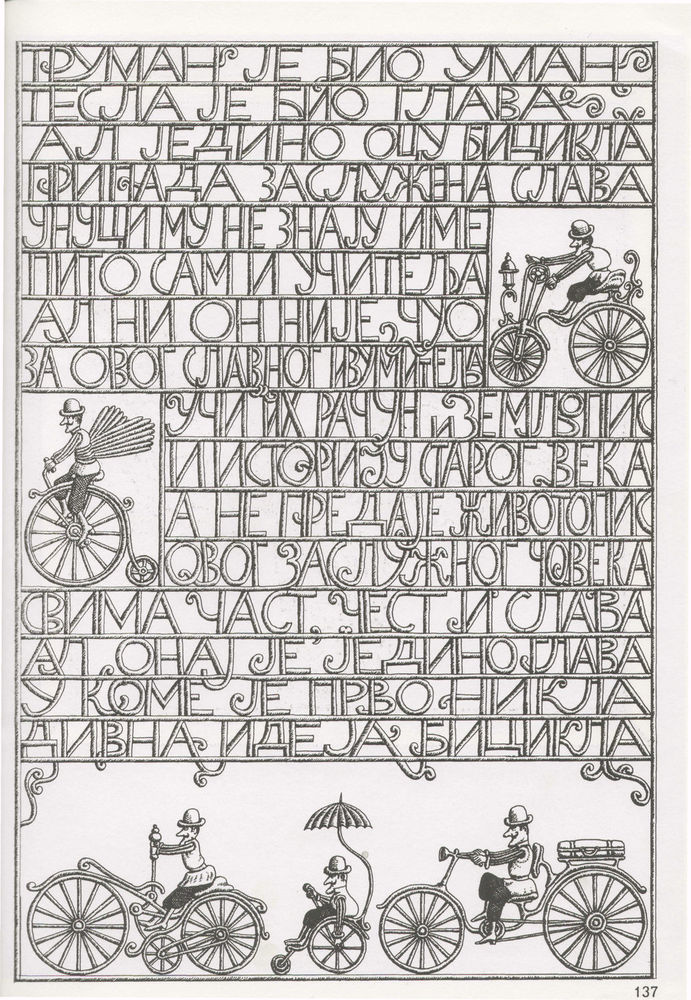 ТРУМАН ЈЕ БИО УМАН
ТЕСЛА ЈЕ БИО ГЛАВА
АЛ ЈЕДИНО ОЦУ БИЦИКЛА
ПРИПАДА ЗАСЛУЖЕНА СЛАВА
УНУЦИ МУ НЕ ЗНАЈУ ИМЕ
ПИТО САМ И УЧИТЕЉА
АЛ НИ ОН НИЈЕ ЧУО
ЗА ОВОГ СЛАВНОГ ИЗУМИТЕЉА
УЧИ ИХ РАЧУН И ЗЕМЉОПИС
И ИСТОРИЈУ СТАРОГ ВЕКА
А НЕ ПРЕДАЈЕ ЖИВОТОПИС
ОВОГ ЗАСЛУЖНОГ ЧОВЕКА
СВИМА ЧАСТ, ЧЕСТ И СЛАВА
АЛ ОНАЈ ЈЕ ЈЕДИНО ГЛАВА
У КОМЕ ЈЕ ПРВО НИКЛА
ДИВНА ИДЕЈА БИЦИКЛА
137